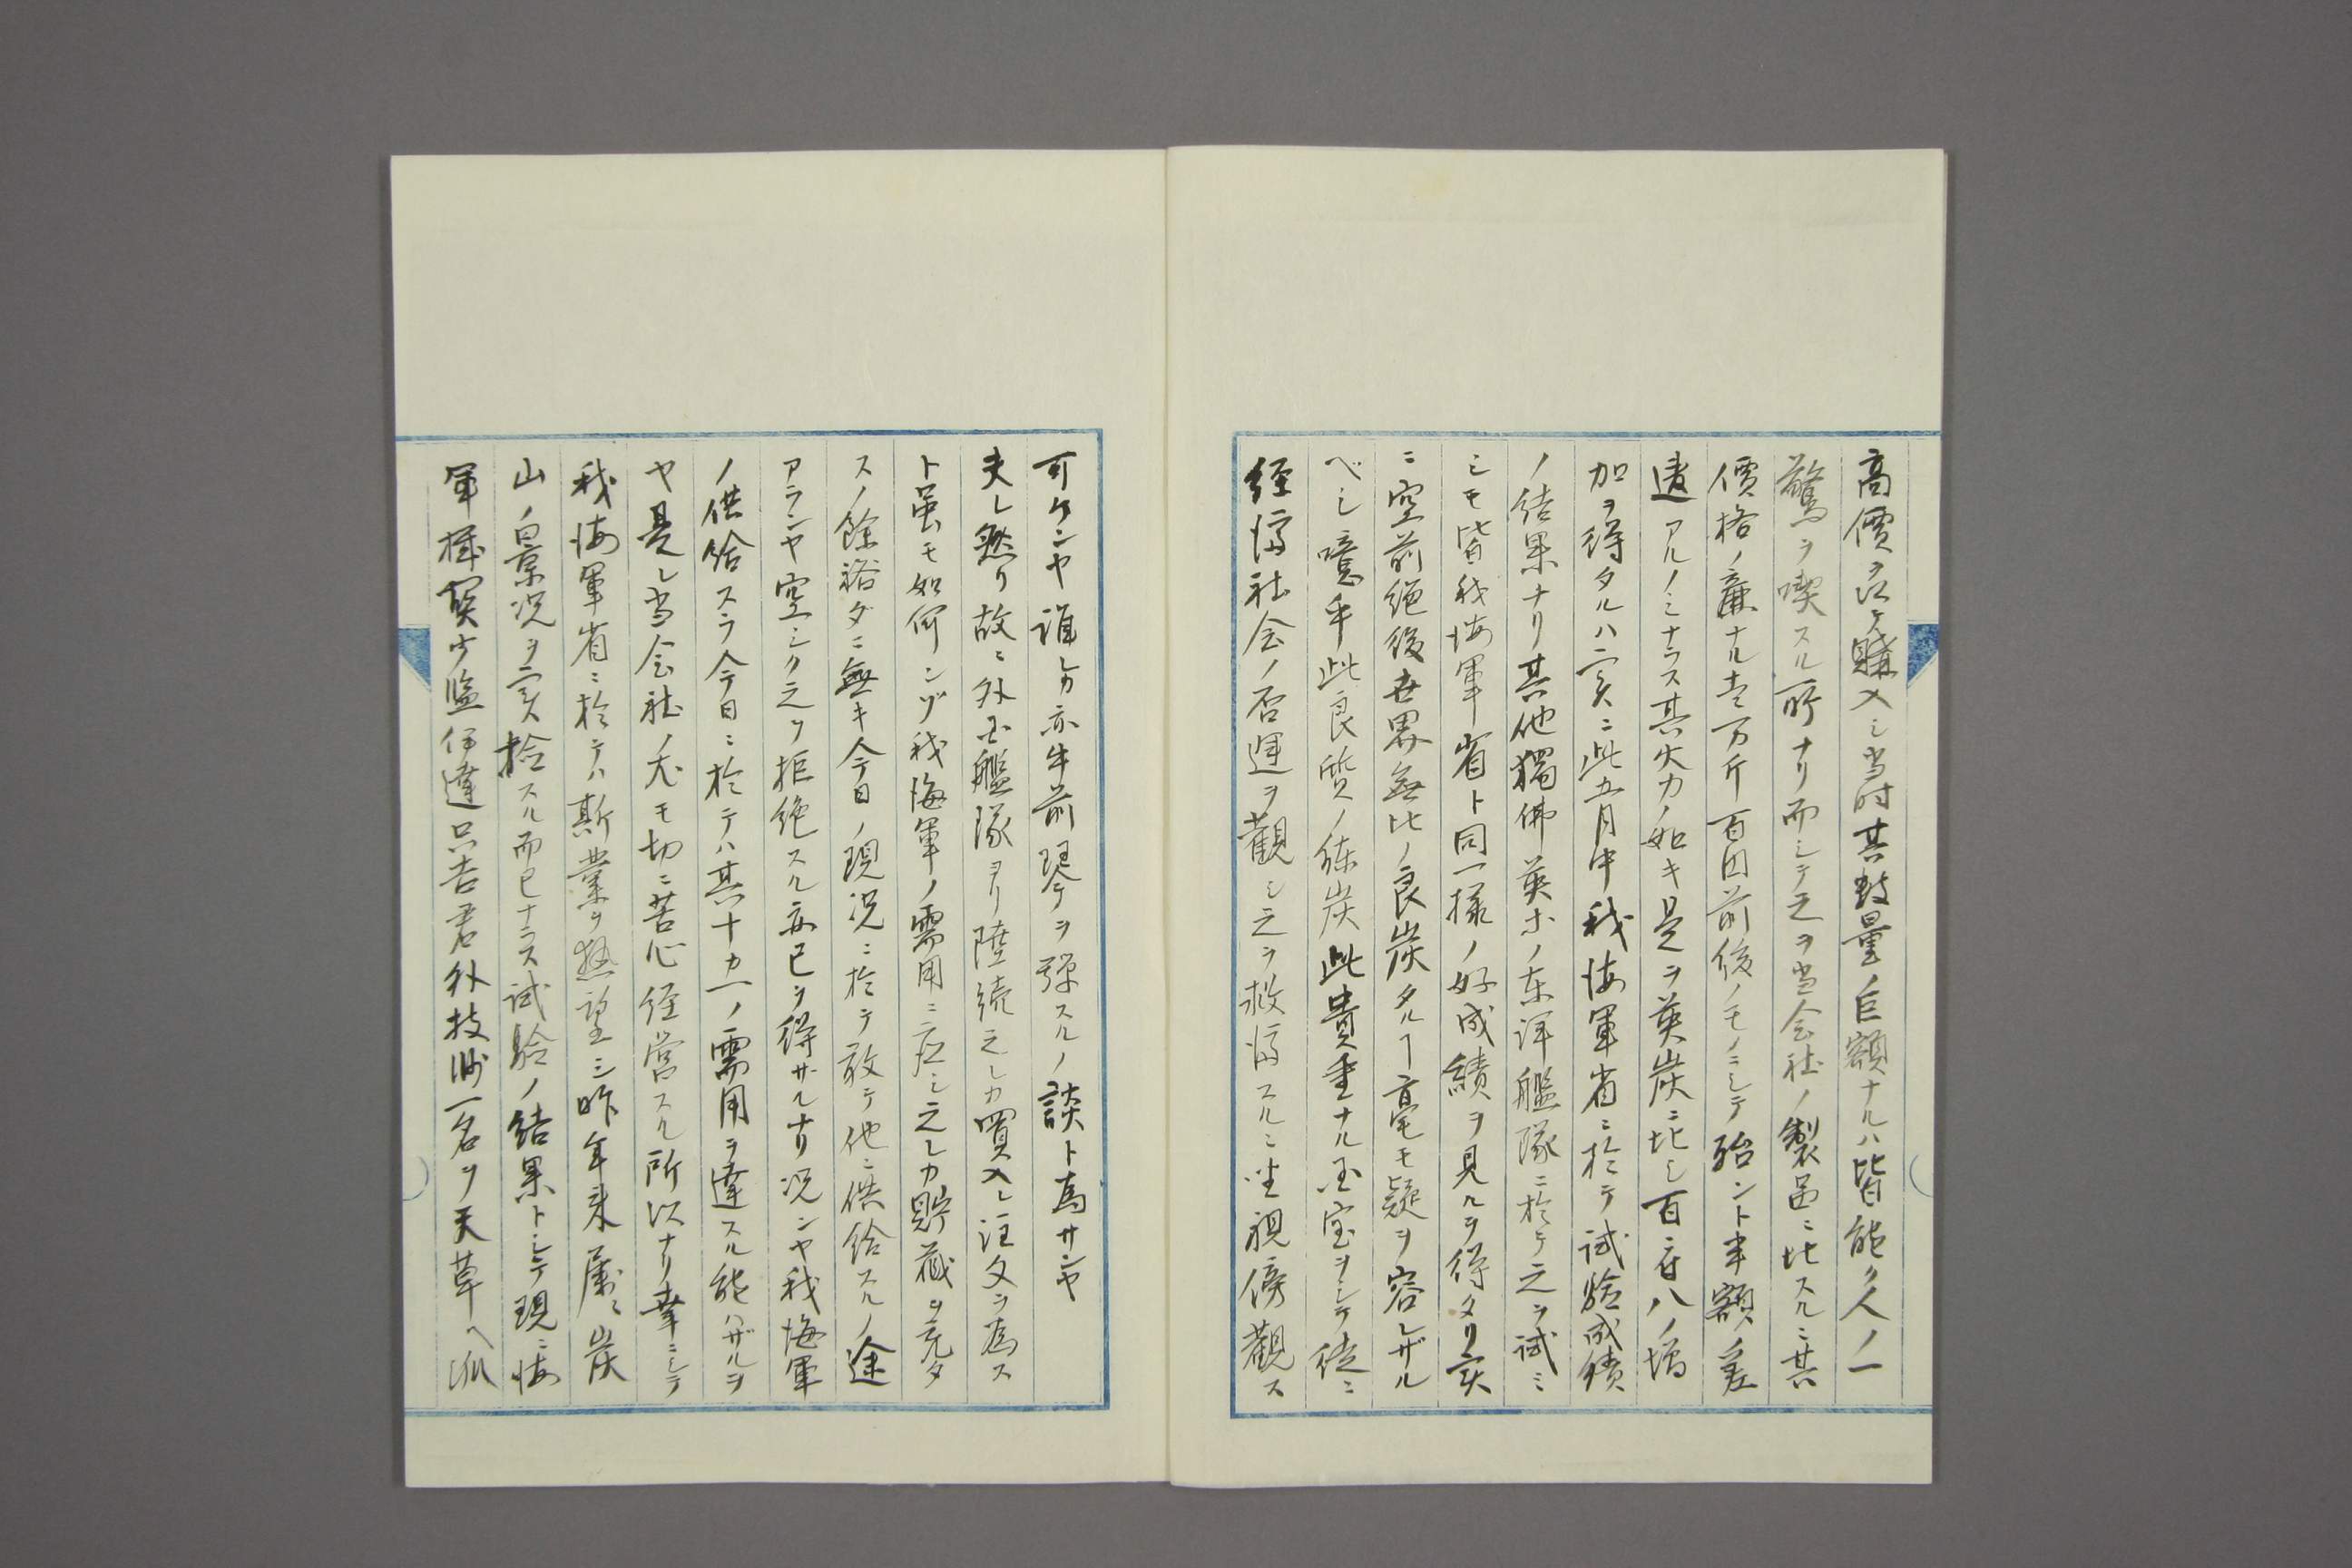 高價ヲ以テ購入シ当時其数量ノ巨額ナルハ皆能ク人ノ一
驚ヲ喫スル所ナリ而シテ之ヲ当会社ノ製品ニ比スルニ其
價格ノ廉ナル壱万斤百円前後ノモノニシテ殆ント半額ノ差
違アルノミナラス其火力ノ如キ是ヲ英炭ニ比シ百斤八ノ増
加ヲ得タルハ実ニ此五月中我海軍省ニ於テ試験成績
ノ結果ナリ其他獨佛英等ノ東洋艦隊ニ於テ之ヲ試ミ
シモ皆我海軍省ト同一様ノ好成績ヲ見ルヲ得タリ実
ニ空前絶後世界無比ノ良炭タルヿ毫モ疑ヲ容レザル
ベシ噫乎此良質ノ煉炭此貴重ナル玉宝ヲシテ徒ニ
経済社会ノ否運ヲ觀シ之ヲ救済スルニ坐視傍觀ス
可ケンヤ誰レカ亦牛前琴ヲ弾スルノ談ト為サンヤ
夫レ然リ故ニ外国艦隊ヨリ陸続之レカ買入レ注文ヲ為ス
ト虽モ如何ンゾ我海軍ノ需用ニ応シ之レカ貯蔵ヲ充タ
スノ餘裕ダニ無キ今日ノ現況ニ於テ敢テ他ニ供給スルノ途
アランヤ空シク之ヲ拒絶スル亦已ヲ得サルナリ况ンヤ我海軍
ノ供給スラ今日ニ於テハ其十カ一ノ需用ヲ達スル能ハザルヲ
ヤ是レ当会社ノ尤モ切ニ苦心経営スル所以ナリ幸ニシテ
我海軍省ニ於テハ斯業ヲ熱望シ昨年来屡々炭
山ノ景况ヲ実検スル而已ナラス試験ノ結果トシテ現ニ海
軍機関少監伊達只吉君外技師一名ヲ天草ヘ派